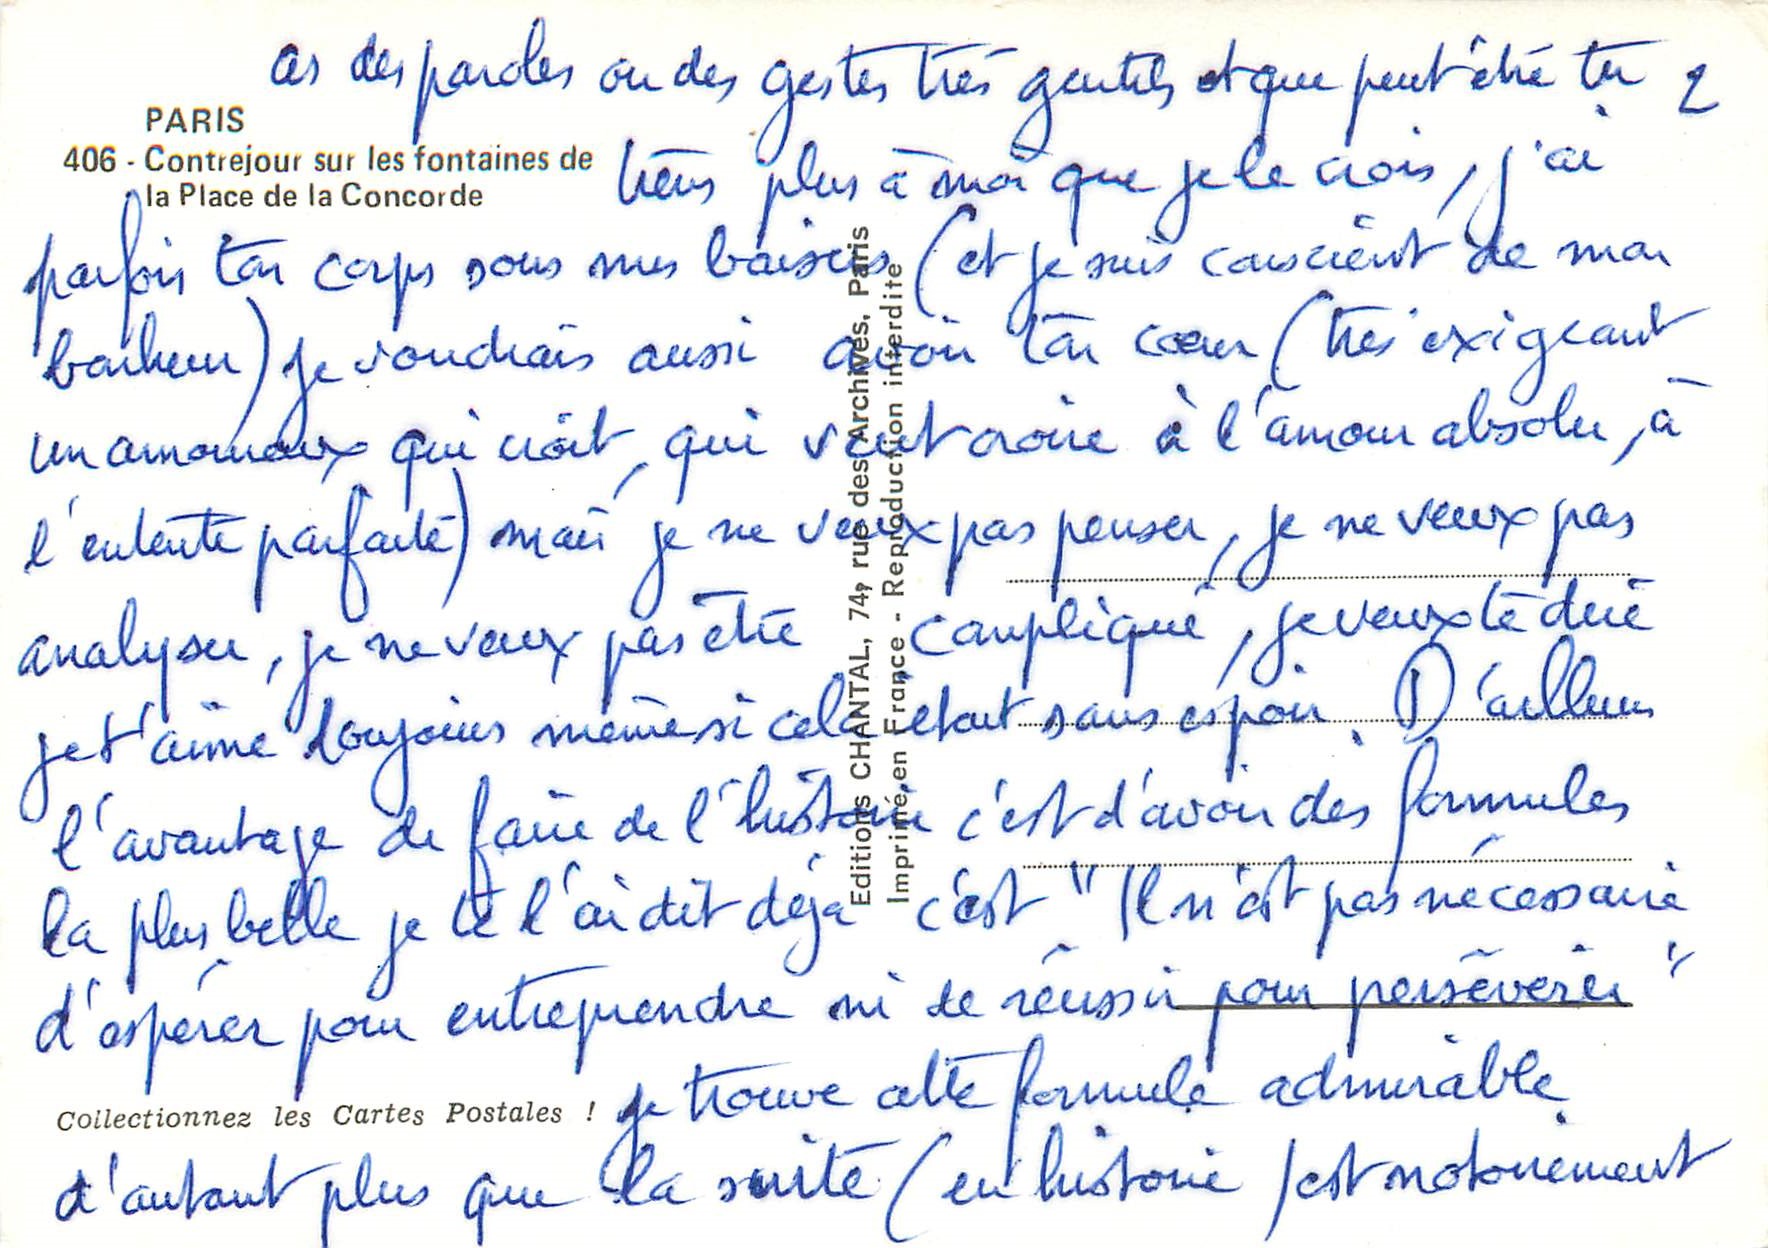 as des paroles ou des gestes très gentils et que peut être tu 2
PARIS
406 - Contrejour sur les fontaines de
la Place de la Concorde
tiens plus à moi que je le crois, j'ai
parfois ton corps sous mes baisers (et je suis conscient de mon
bonheur) je voudrais aussi avoir ton cœur (très exigeant
un amoureux qui croit, qui veut croire à l'amour absolu, à
l'entente parfaite) mais je ne veux pas penser, je ne veux pas
analyser, je ne veux pas être compliqué, je veux te dire
je t'aime toujours même si cela était sans espoir. D'ailleurs
l'avantage de faire de l'histoire c'est d'avoir des formules
la plus belle je te l'ai dit déjà c'est "Il n'est pas nécessaire
d'espérer pour entreprendre ni de réussir pour persévérer"
Collectionnez les Cartes Postales !
je trouve cette formule admirable
d'autant plus que la suite (en histoire / est notoirement
Editions CHANTAL, 74, rue des Archives, Paris
Imprimé en France - Reproduction interdite